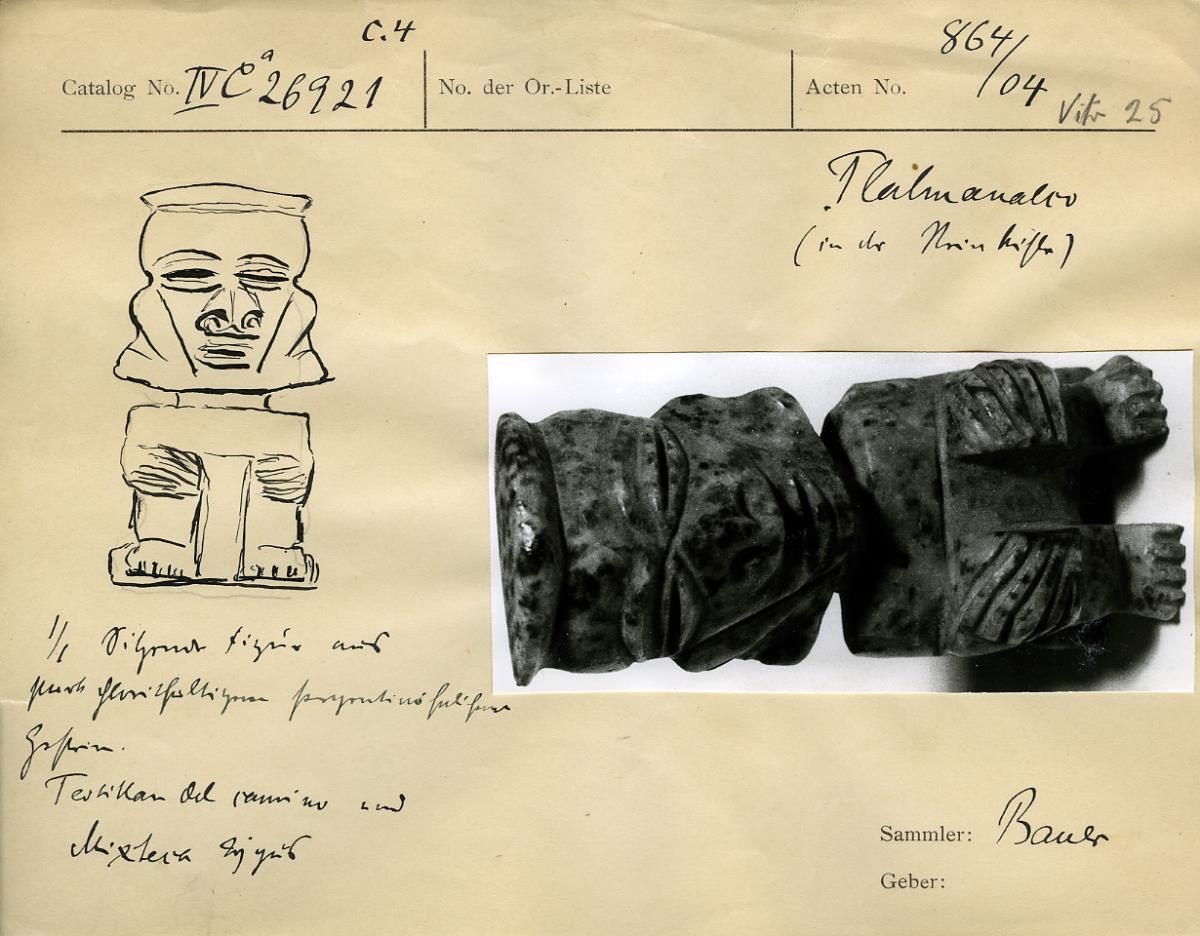 C.4
Catalog No. IV Ca 26921
No. der Or.-Liste
Acten No. 864/04
Vitr 25
Tlalmanalco
(in der Steinkiste)
1/1 Sitzende Figur aus
stark chlorithaltigem serpentinähnlichem
Gestein.
Teotitlan del camino und
Mixteca Typus
Sammler: Bauer
Geber: